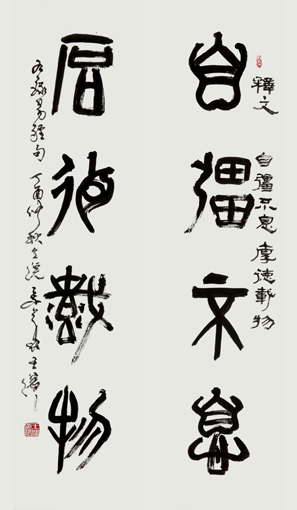 自彊不息
釋文
自彊不息厚德載物
厚德載物
右録易經句丁酉仲秋